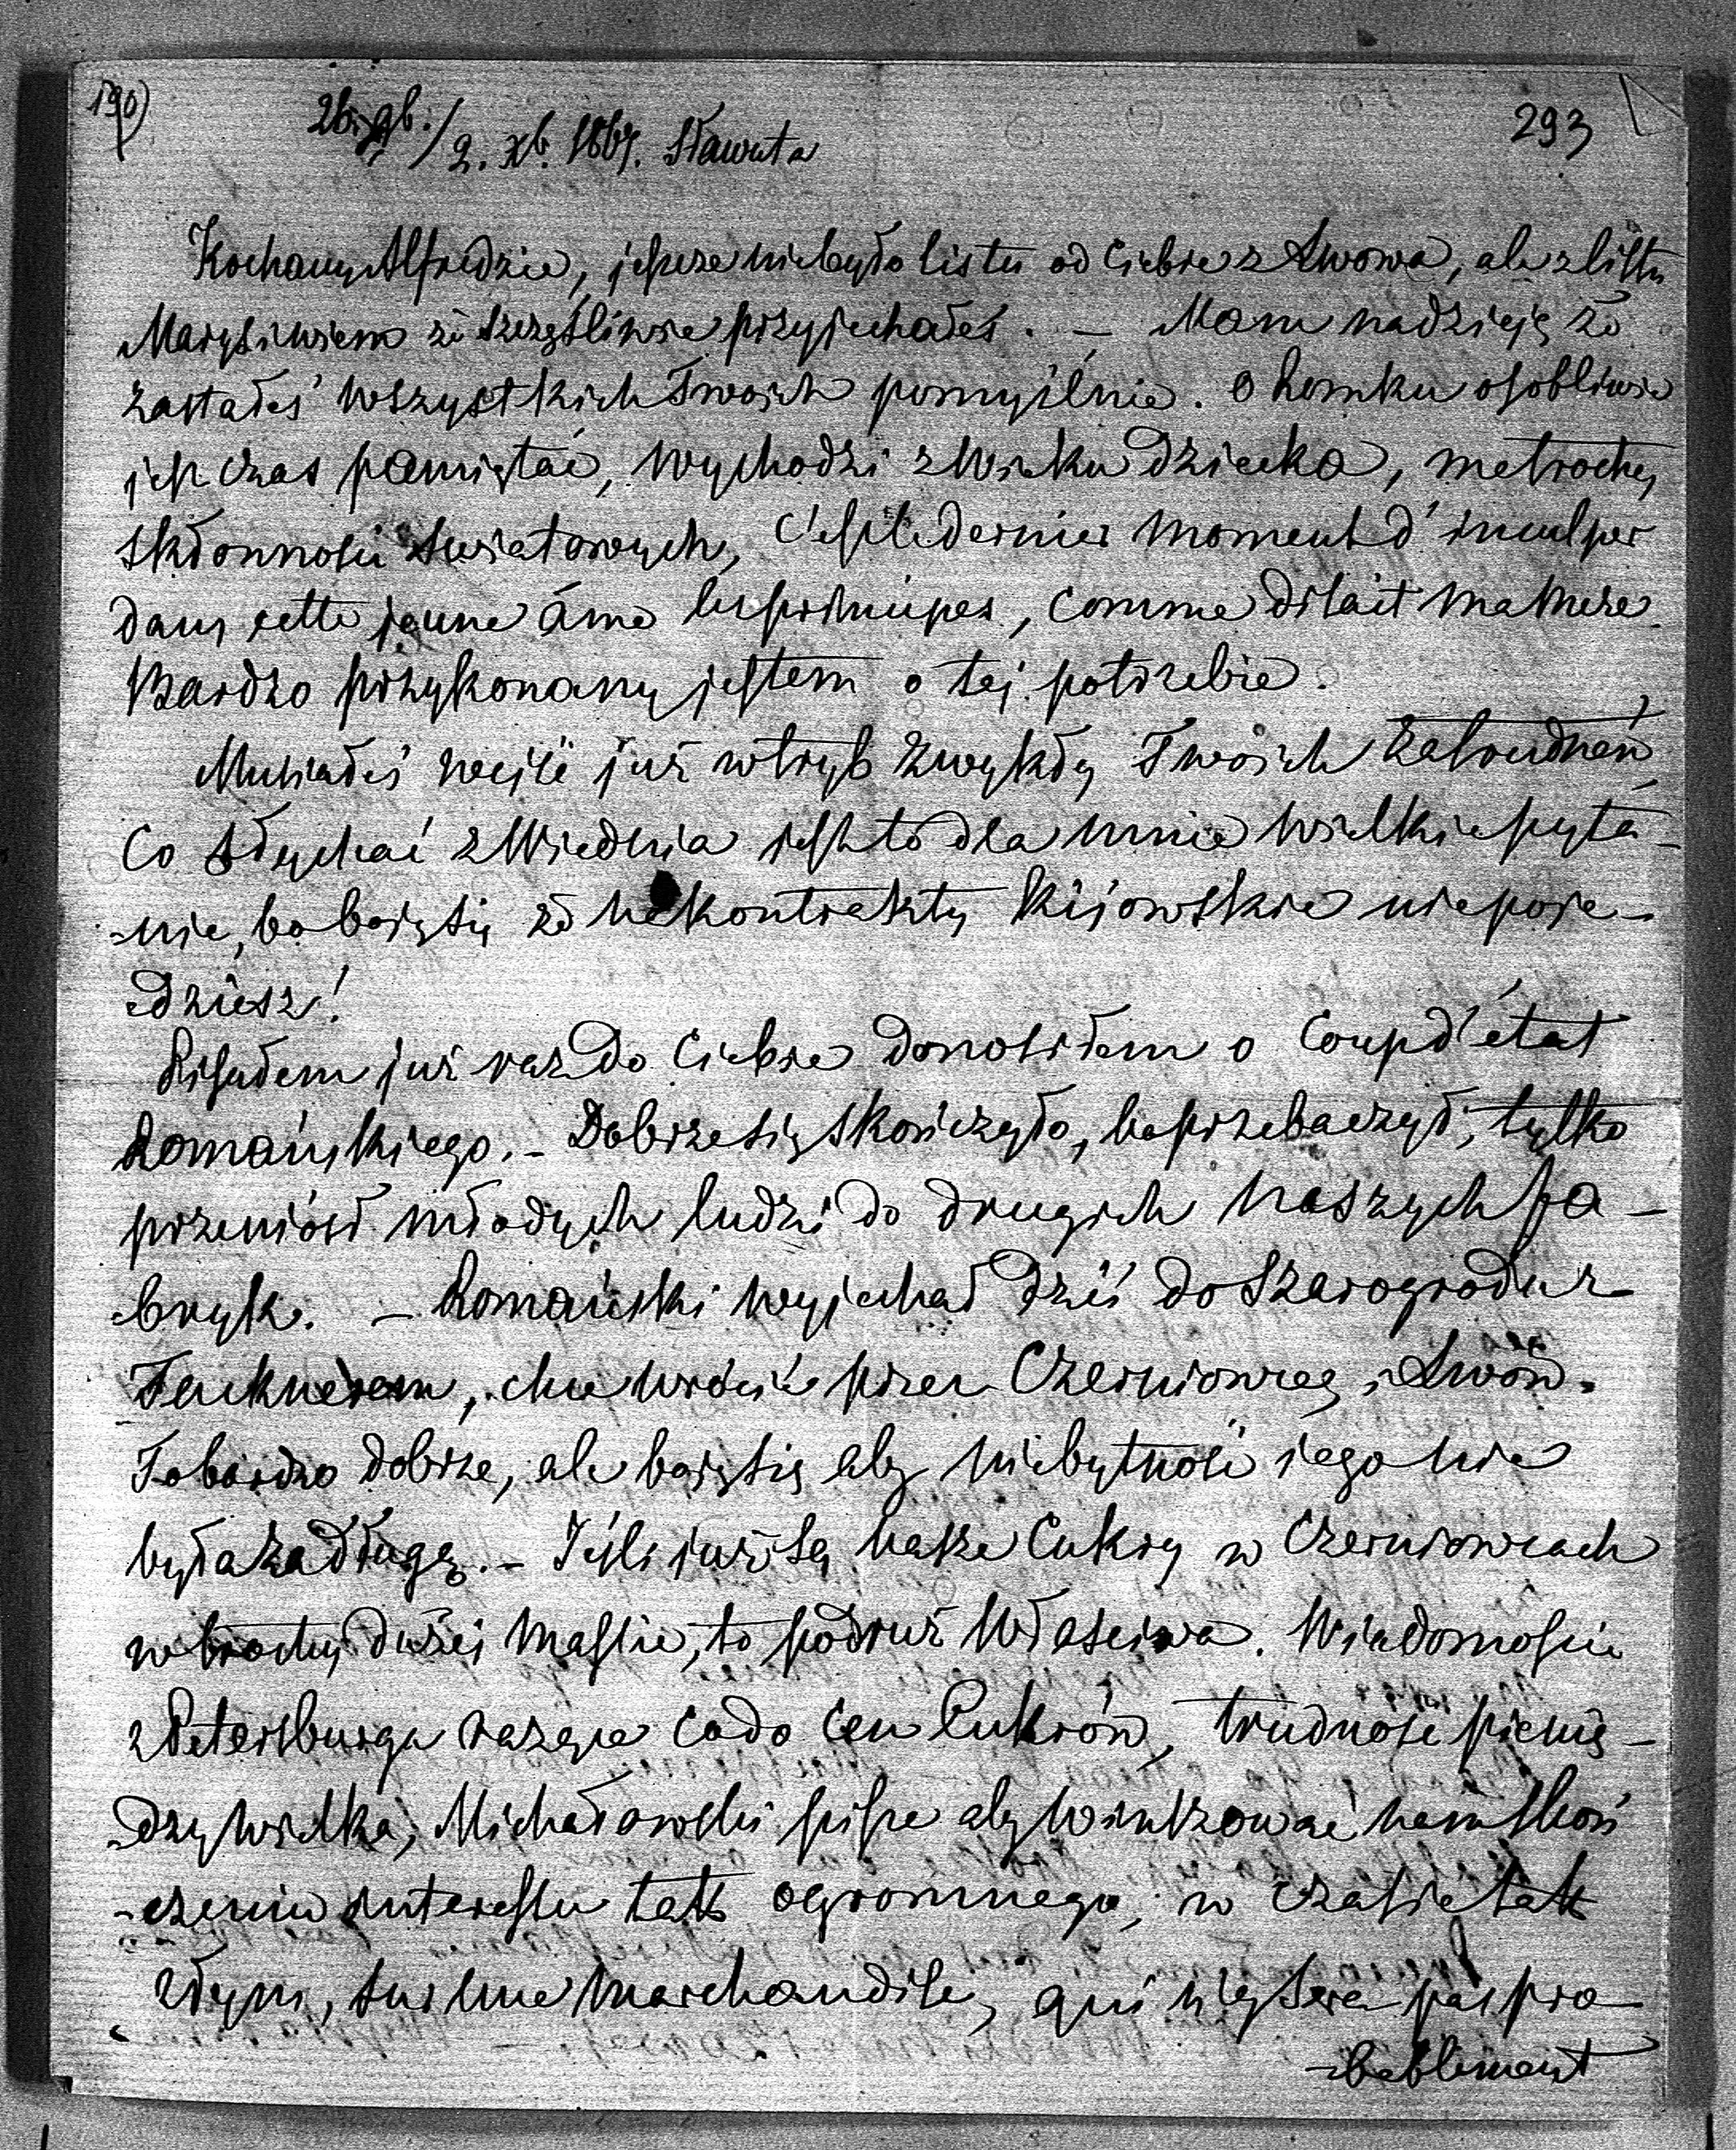 190)
293
26. 9b./2. Xb. 1867. Sławuta
Kochany Alfredzie, jeszcze niebyło listu od Ciebie z Lwowa, ale z listu
Marysi wiem że szczęśliwie przyjechałeś. – Mam nadzieję że
zastałeś wszystkich Twoich pomyślnie. O Romku osobliwie
jest czas pamiętać, wychodzi z wieku dziecka, ma trochę
skłonności światowych, C'est le dernier moment d'inculper
dans cette jeune âme les principes, comme disait ma Mere.
Bardzo przykonany jestem o tej potrzebie.
Musiałeś wejść już w tryb zwykły Twoich zatrudnień,
Co słychać z Wiednia jest to dla mnie wielkie pyta-
-nie, bo boję się że na kontrakty Kijowskie niepoje-
-dziesz!
Pisałem już raz do Ciebie donosiłem o Coup d'état
Romańskiego. – Dobrze się skończyło, bo przebaczył, tylko
przeniósł młodych ludzi do drugich naszych fa-
-bryk. – Romański wyjechał dziś do Szarogrodu z
chce wrócić przez Czerniowce i Lwów.
To bardzo dobrze, ale boję się aby niebytność jego nie
była za długą. – Jeśli już są nasze Cukry w Czerniowcach
w trochę dużej massie, to podruż właściwa. Wiadomoście
z Petersburga rażące co do cen Cukrów, trudność pienię-
-dzy wielka, Michałowski pisze aby winszować nam skoń
-czeniu interessu tak ogromnego, w czasie tak
złym, sur une marchandise, qui n'y sera pas pro
-bablement